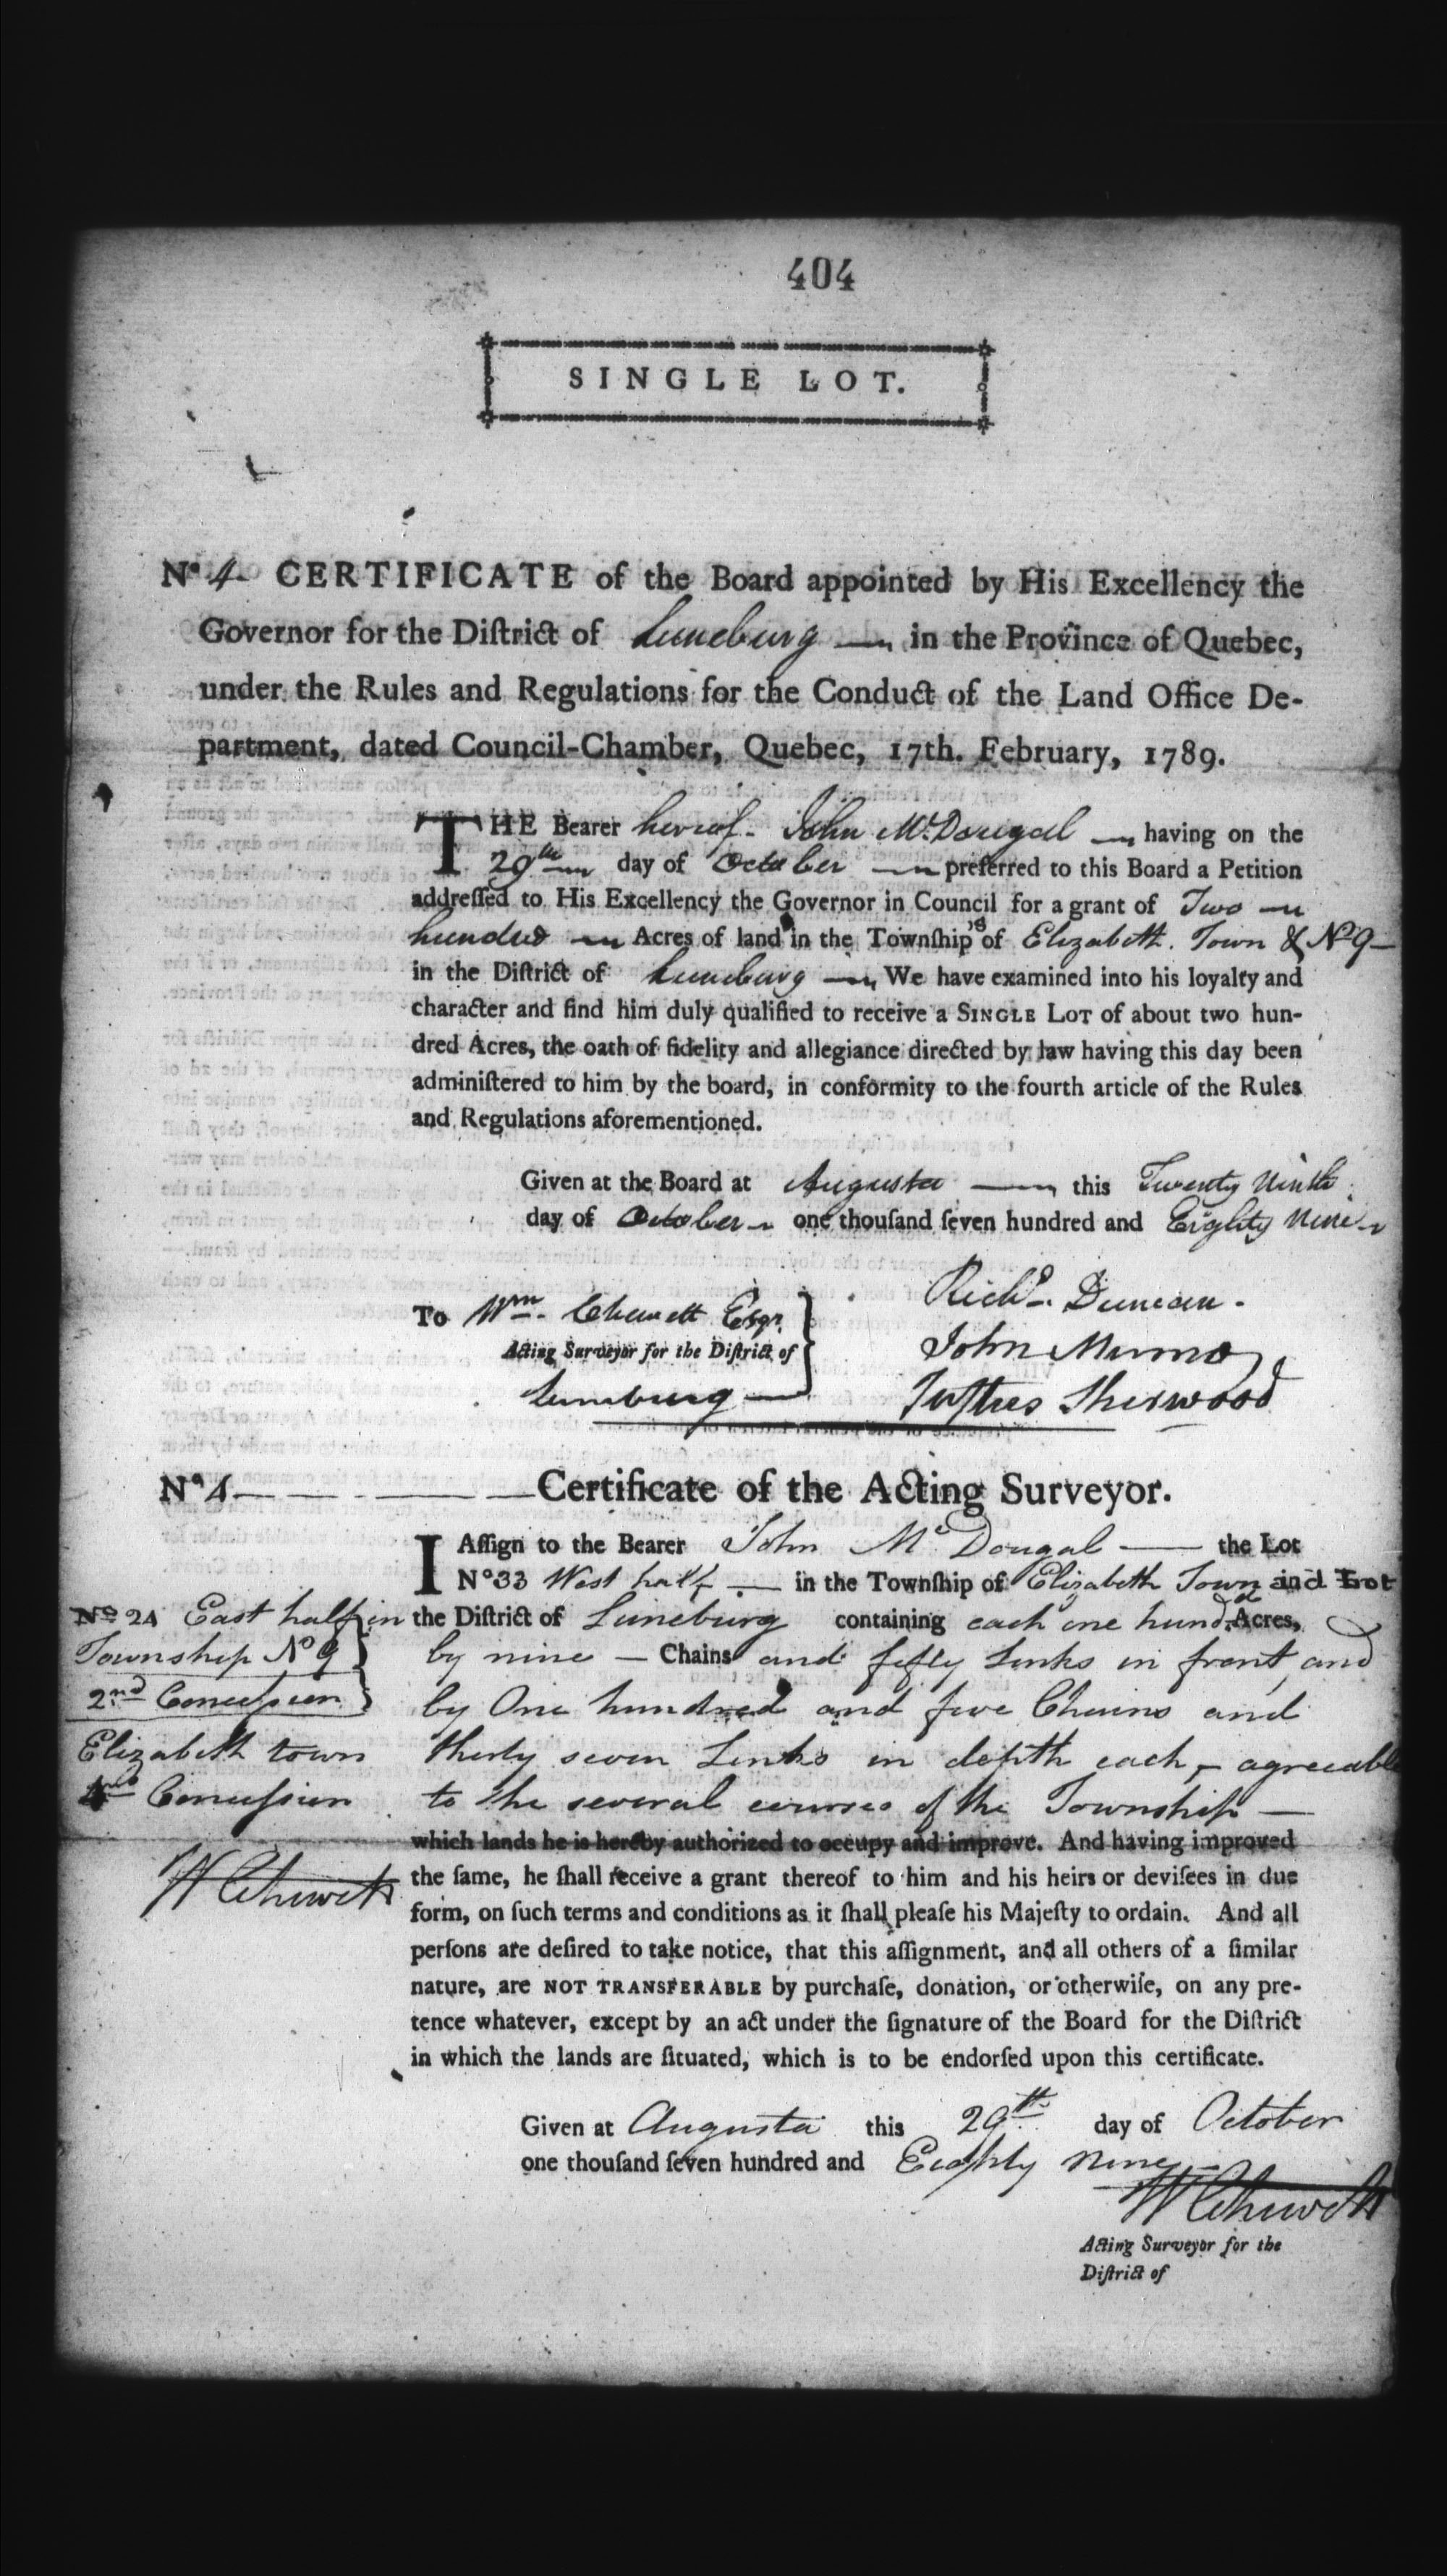 404
SINGLE LOT.
No. 4 CERTIFICATE of the Board appointed by His Excellency the
Governor for the Diſtrict of Luneburg in the Province of Quebec,
under the Rules and Regulations for the Conduct of the Land Office De-
partment, dated Council-Chamber, Quebec, 17th. February, 1789.
THE Bearer hereof John McDougal having on the
29th day of October preferred to this Board a Petition
addreſſed to His Excellency the Governor in Council for a grant of Two
hundred Acres of land in the Townſhip's of Elizabeth Town & No 9
in the Diſtrict of Luneburg We have examined into his loyalty and
character and find him duly qualified to receive a SINGLE LOT of about two hun-
dred Acres, the oath of fidelity and allegiance directed by law having this day been
adminiſtered to him by the board, in conformity to the fourth article of the Rules
and Regulations aforementioned.
Given at the Board at Augusta this Twenty Ninth
day of October one thouſand ſeven hundred and Eighty Nine
To Wm. Chewett Esqr.
Acting Surveyor for the Diſtrict of
Luneburg
Richd. Duncan.
John Munro
Justus Sherwood
No 4 Certificate of the Acting Surveyor.
I Aſſign to the Bearer John Mc Dougal the Lot
No 33 West half in the Townſhip of Elizabeth Town and Lot
No 24 East half in the Diſtrict of Luneburg containing each one hund.d Acres,
Township No 9
2nd Conceſsion
Elizabeth town
Conceſsion
W Chewett
by nine Chains and fifty Links in front, and
by One hundred and five Chains and
thirty seven Links in depth each, agreeable
to the several courses of the Township
which lands he is hereby authorized to occupy and improve. And having improved
the ſame, he ſhall receive a grant thereof to him and his heirs or deviſees in due
form, on ſuch terms and conditions as it ſhall pleaſe his Majeſty to ordain. And all
perſons are deſired to take notice, that this aſſignment, and all others of a ſimilar
nature, are NOT TRANSFERABLE by purchaſe, donation, or otherwiſe, on any pre-
tence whatever, except by an act under the ſignature of the Board for the Diſtrict
in which the lands are ſituated, which is to be endorſed upon this certificate.
Given at Augusta this 29th day of October
one thouſand ſeven hundred and Eighty nine
W Chewett
Acting Surveyor for the
Diſtrict of